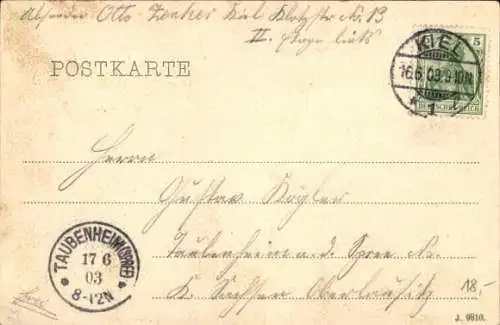 Absender Otto Zenker Kiel Klotzstr No. 13
II. Etage links
POSTKARTE
KIEL
16.6.03.9-10N
* 1
5
DEUTSCHES REICH
Herrn
Gustav Kögler
Taubenheim a. d. Spree
K. Sachsen Oberlausitz
TAUBENHEIM (SPREE)
17 6
03
8-12N
18,-
J. 9810.